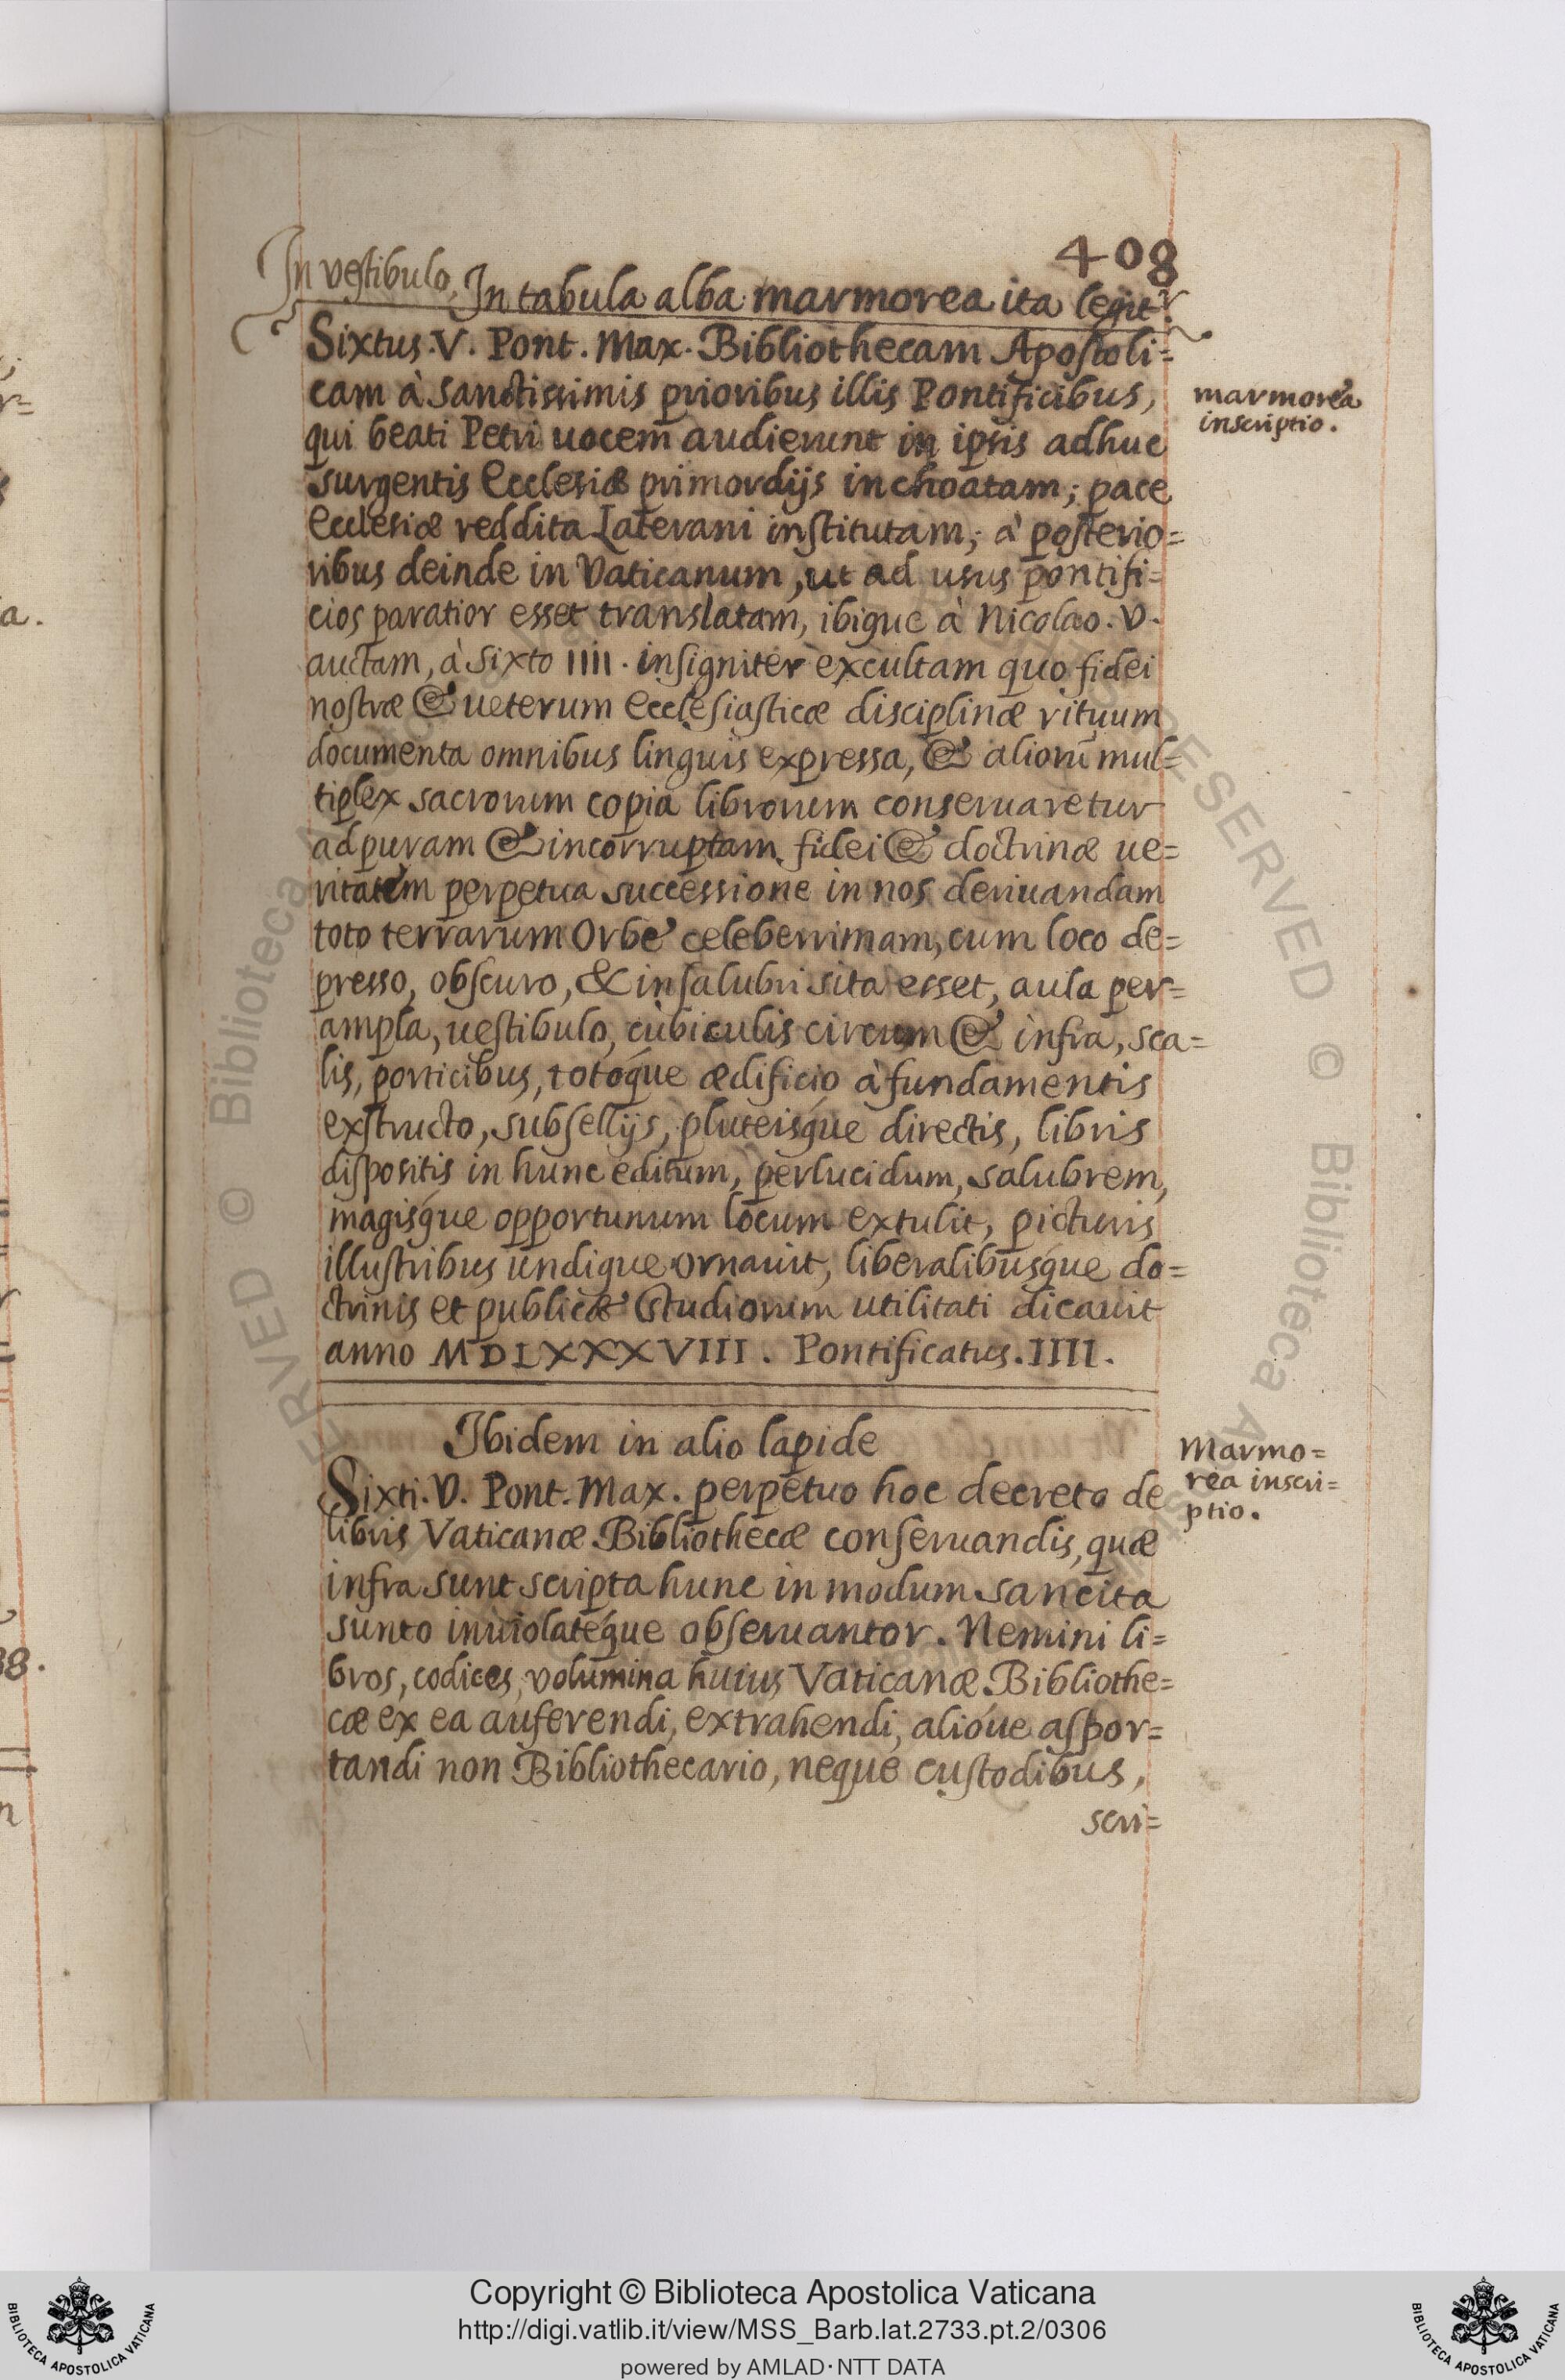 408
In vestibulo, In tabula alba marmorea ita legit.r
Sixtus .V. Pont. Max. Bibliothecam Apostoli=
cam à sanctissimis prioribus illis Pontificibus,
qui beati Petri uocem audierunt in ipsis adhuc
surgentis Ecclesiæ primordijs inchoatam; pace
Ecclesiæ reddita Laterani institutam; à posterio=
ribus deinde in Vaticanum, ut ad usus pontifi=
cios paratior esset translatam, ibique à Nicolao .V.
auctam, à Sixto IIII. insigniter excultam quo fidei
nostræ & ueterum Ecclesiasticæ disciplinæ rituum
documenta omnibus linguis expressa, & aliorū mul=
tiplex sacrorum copia librorum conseruaretur
ad puram & incorruptam fidei & doctrinæ ue=
ritatem perpetua successione in nos deriuandam
toto terrarum Orbe celeberrimam, cum loco de=
presso, obscuro, & insalubri sita esset, aula per=
ampla, uestibulo, cubiculis circum & infra, sca=
lis, porticibus, totóque ædificio à fundamentis
exstructo, subsellijs, pluteisque directis, libris
dispositis in hunc editum, perlucidum, salubrem,
magisque opportunum locum extulit, picturis
illustribus undique ornauit, liberalibusque do=
ctrinis et publicæ studiorum utilitati dicauit
anno MDLXXXVIII. Pontificatus .IIII.
marmorea
inscriptio.
Ibidem in alio lapide
Sixti .V. Pont. Max. perpetuo hoc decreto de
libris Vaticanæ Bibliothecæ conseruandis, quæ
infra sunt scripta hunc in modum sancita
sunto inuiolatéque obseruantor. Nemini li=
bros, codices, volumina huius Vaticanæ Bibliothe=
cæ ex ea auferendi, extrahendi, alióue aspor=
tandi non Bibliothecario, neque custodibus,
scri=
Marmo=
rea inscri=
ptio.
Copyright © Biblioteca Apostolica Vaticana
http://digi.vatlib.it/view/MSS_Barb.lat.2733.pt.2/0306
powered by AMLAD·NTT DATA
BIBLIOTECA APOSTOLICA VATICANA
BIBLIOTECA APOSTOLICA VATICANA